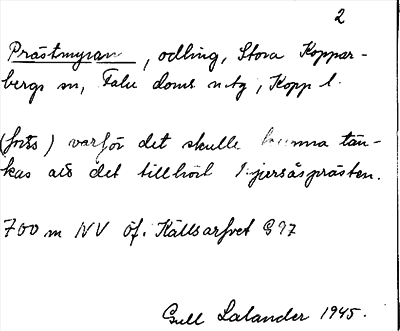 2
Prästmyran, odling, Stora Koppar-
bergs sn, Falu doms utg, Kopp l.
(forts) varför det skulle kunna tän-
kas att det tillhört Bjursåsprästen.
700 m NV öf. Källsarfvet G 97
Gull Lalander 1945.